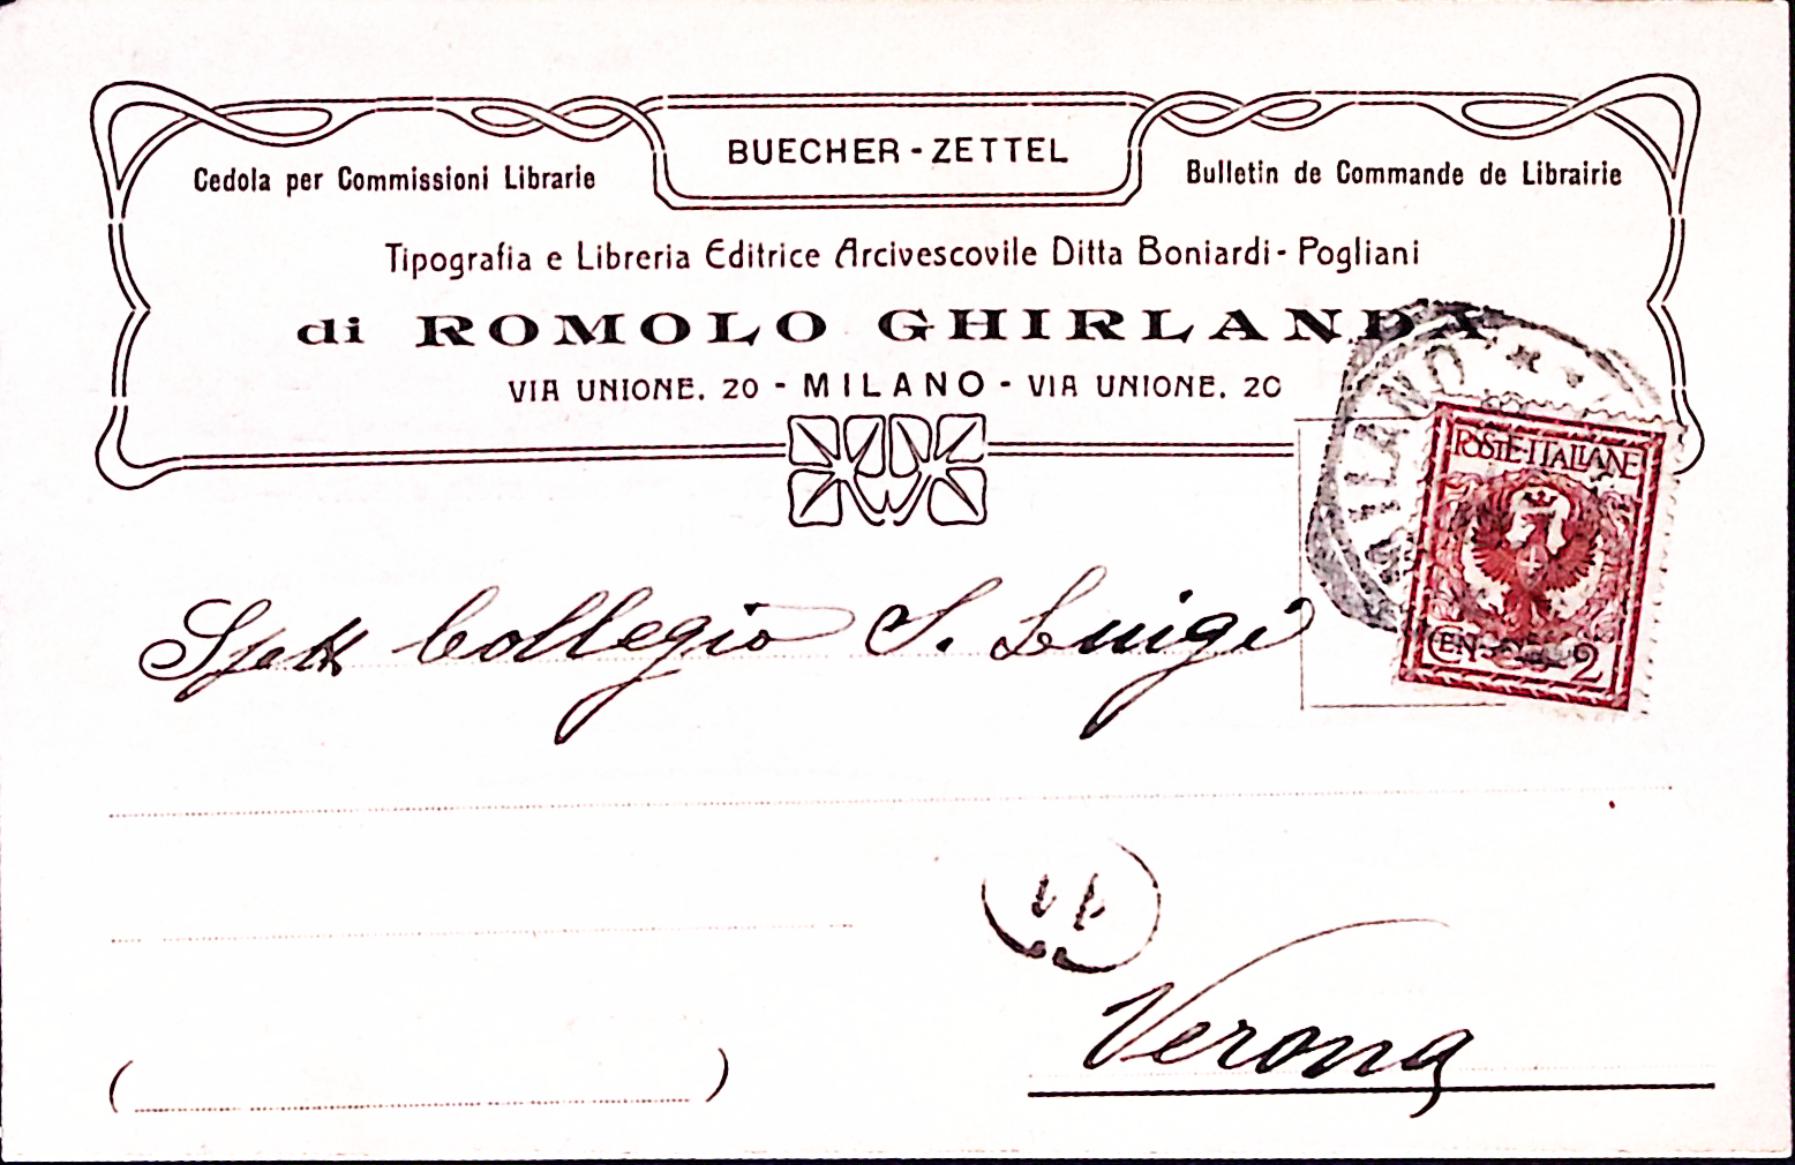 BUECHER - ZETTEL
Cedola per Commissioni Librarie
Bulletin de Commande de Librairie
Tipografia e Libreria Editrice Arcivescovile Ditta Boniardi - Pogliani
di ROMOLO GHIRLANDA
VIA UNIONE, 20 - MILANO - VIA UNIONE, 20
MILANO
POSTE·ITALIANE
CEN 2
Spett Collegio S. Luigi
11
Verona
( )